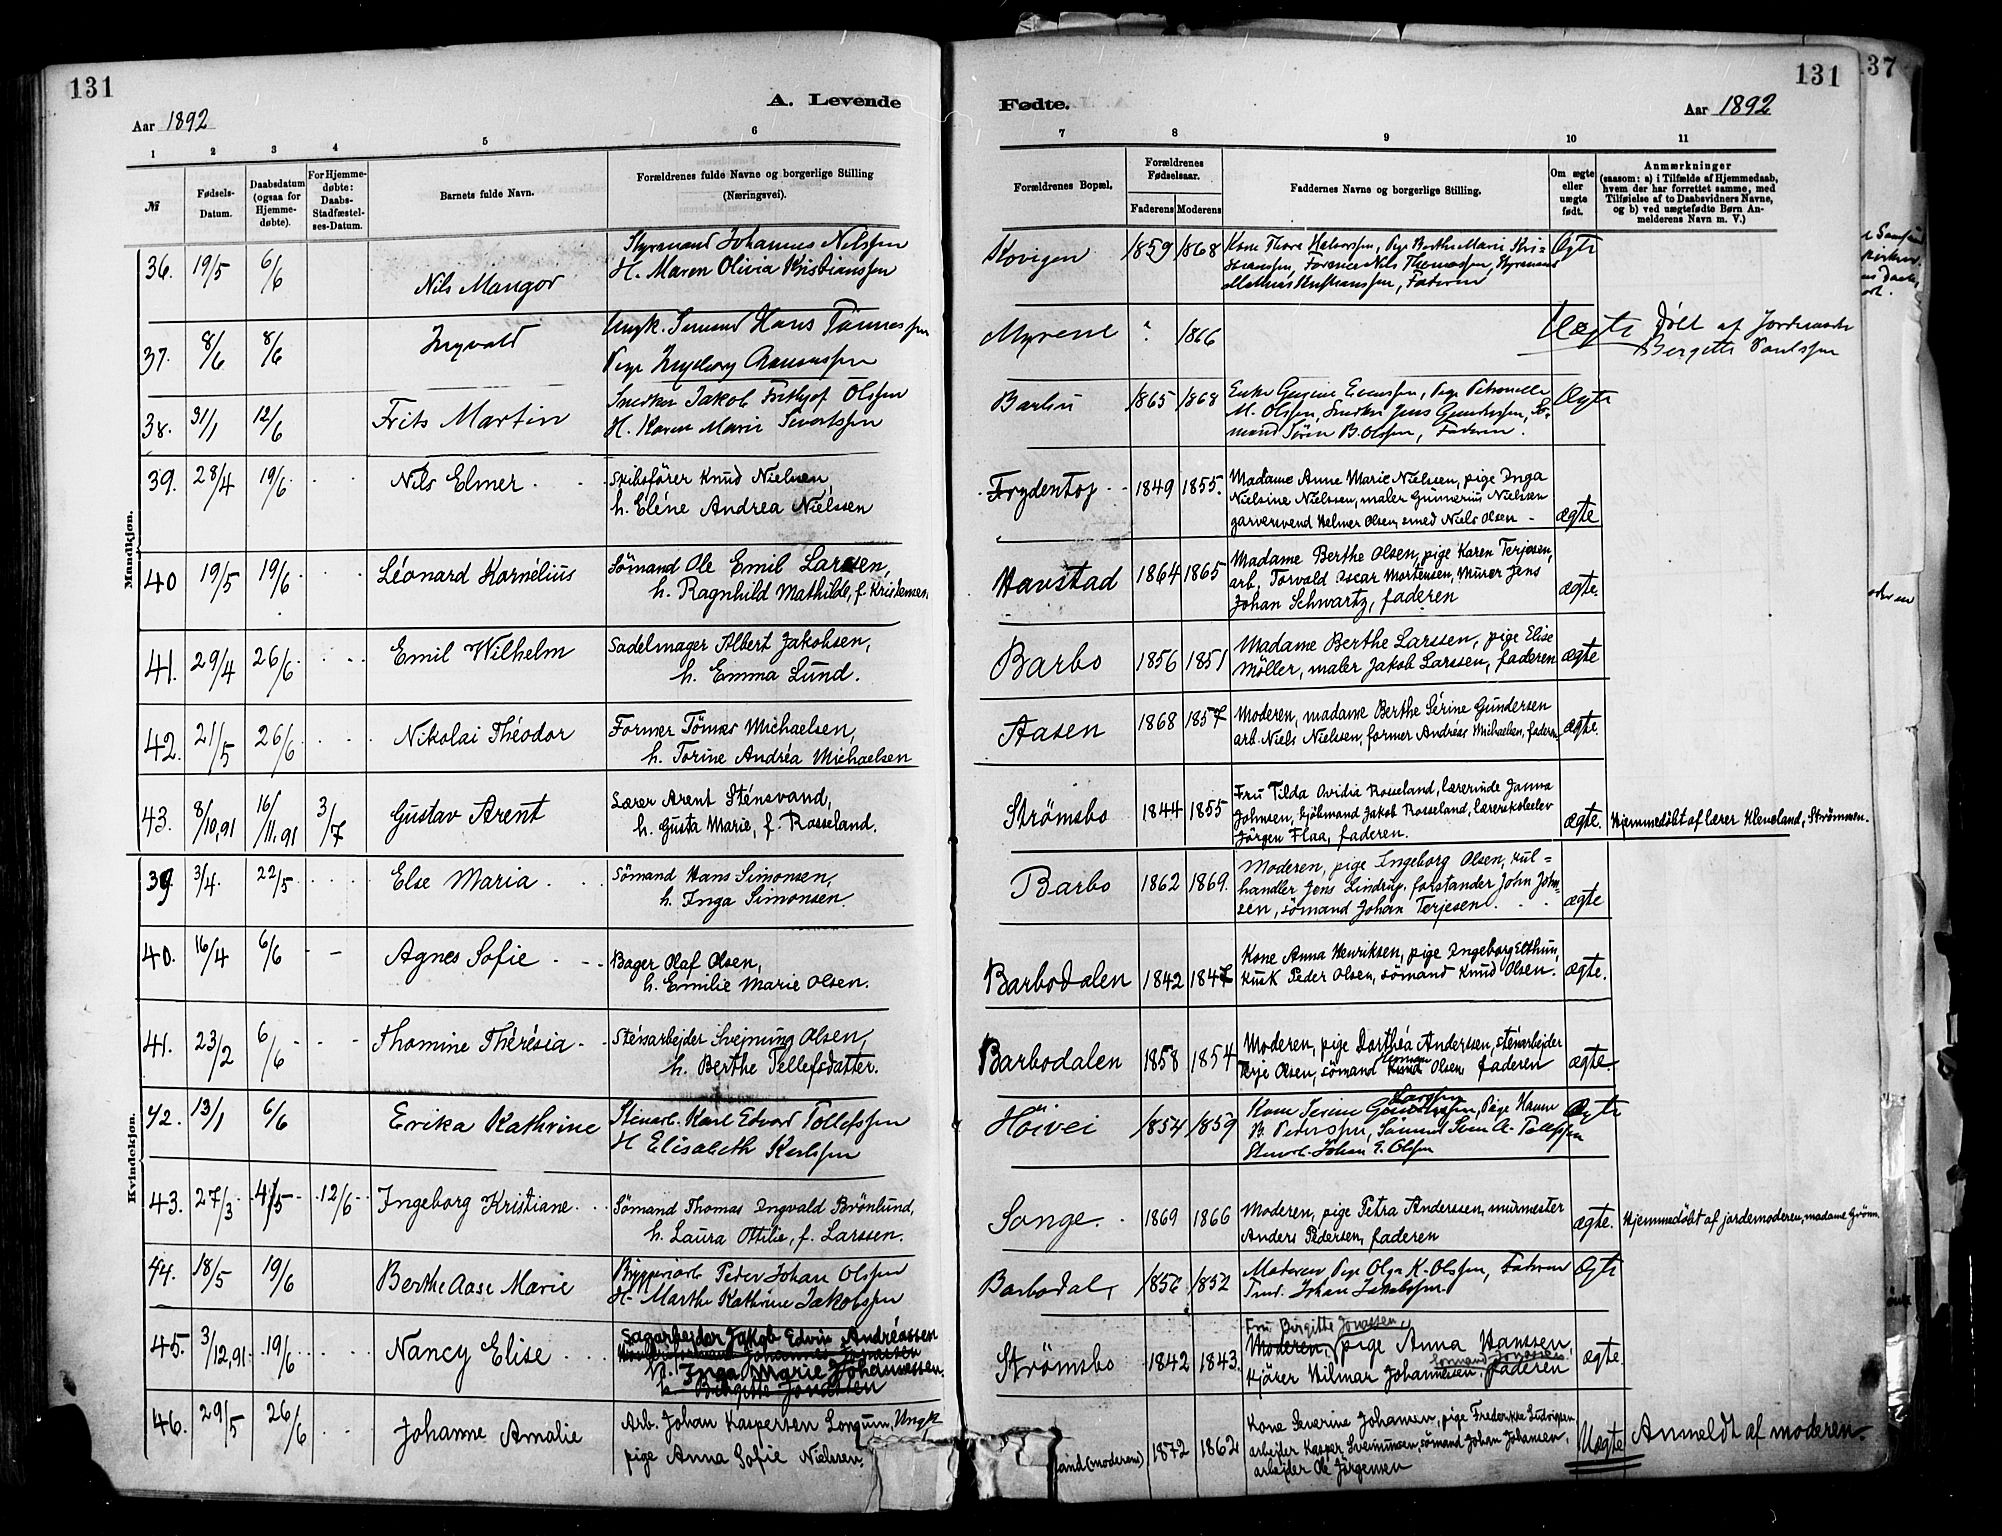 131
A. Levende
Aar 1892
1 2 3 4 5 6
№
Fødsels-
Datum.
Daabsdatum
(ogsaa for
Hjemme-
døbte).
For Hjemme-
døbte:
Daabs-
Stadfæstel-
ses-Datum.
Barnets fulde Navn.
Forældrenes fulde Navne og borgerlige Stilling
(Næringsvei).
Mandkjøn.
36. 19/5 6/6 Nils Mangor
Styrmand Johannes Nilssen
H. Maren Olivia Kristianssen
37. 8/6 8/6 Ingvald
Ungk. Sømand Hans Tønnessen
Pige Ingeborg Aanonssen
38. 31/1 12/6 Frits Martin
Snedker Jakob Frithjof Olssen
H. Karen Marie Sivertssen
39. 28/4 19/6 Nils Elmer
Skibsfører Knud Nielsen,
h. Eléne Andrea Nielssen
40 19/5 19/6 Léonard Kornélius
Sømand Ole Emil Larsen,
h. Ragnhild Mathilde, f. Kristensen.
41. 29/4 26/6 Emil Wilhelm
Sadelmager Albert Jakobsen,
h. Emma Lund.
42. 21/5 26/6 Nikolai Théodor
Former Tômas Michaelsen,
h. Torine Andréa Michaelsen
43. 8/10,91 16/11,91 3/7 Gustav Arent
Lærer Arent Sténsvand,
h. Gusta Marie, f. Rosseland.
Kvindekjøn.
39. 3/4. 22/5 Else Maria
Sømand Hans Simonsen,
h. Inga Simonsen.
40. 16/4 6/6 Agnes Sofie
Bager Olaf Olsen,
h. Emilie Marie Olsen.
41. 23/2 6/6 Thomine Thérésia
Sténarbejder Svejnung Olsen,
h. Berthe Tellefsdatter.
42. 13/1 6/6 Erika Kathrine
Stenarb. Karl Edvard Tollefssen
H Elisabeth Karlssen
43. 27/3 4/5 12/6 Ingeborg Kristiane
Sømand Thomas Ingvald Brønlund,
h. Laura Ottilie, f. Larssen.
44. 18/5 19/6 Berthe Aase Marie
Bryggeriarb Peder Johan Olssen
H. Marthe Kathrine Jakobssen
45. 3/12,91 19/6 Nancy Elise
Sagarbejder Jakob Edvin Andréassen
Johannes Jonassen
h. Inga Marie Johannessen.
h. Birgitte Jonassen
46. 29/5 26/6 Johanne Amalie
Arb. Johan Kaspersen Longum, Ungk
pige Anna Sofie Nielsen.
Fødte.
131
Aar 1892
7 8 9 10 11
Forældrenes Bopæl.
Forældrenes
Fødselsaar.
Faderens Moderens
Faddernes Navne og borgerlige Stilling.
Om ægte
eller
uægte
født.
Anmærkninger
(saasom: a) i Tilfælde af Hjemmedaab,
hvem der har forrettet samme, med
Tilføielse af to Daabsvidners Navne,
og b) ved uægtefødte Børn An-
melderens Navn m. V.)
Kovigen 1859 1868
Kone Thora Halvorssen, Pige Berthe Marie Kri-
stianssen, Nils Thomassen, Styrmand
Mathias Kristianssen, Faderen
Ægte
Myrene ? 1866 Uægte
Døbt af Jordemoder
Bergitte Paulssen
Barbu 1865 1868
Enke Gurine Evenssen, Pige Petronelle
M. Olssen, Snedker Jens Gunderssen, Sø-
mand Søren B. Olssen, Faderen.
Ægte
Frydentop 1849 1855.
Madame Anne Marie Nielsen, pige Inga
Nielsine Nielssen, maler Gunnerius Nielsen
garversvend Helmer Olsen, smed Niels Olsen
ægte
Havstad 1864 1865
Madame Berthe Olsen, pige Karen Terjesen,
arb. Torvald Oscar Mortensen, Murer Jens
Johan Schwartz, faderen
ægte.
Barbo 1856 1851
Madame Berthe Larssen, pige Elise
Møller, maler Jakob Larssen, faderen
ægte
Aasen 1868 1857
Moderen, madame Berthe Sérine Gundersen
arb. Niels Nielsen, former Andréas Michaelsen, faderen
ægte.
Strømsbo 1844 1855
Fru Tilda Ovidia Rosseland, lærerinde Janna
Johnsen, kjøbmand Jakob Rosseland, lærerskoleelev
Jørgen Flaa, faderen.
ægte.
Hjemmedøbt af lærer Kleveland, Strømmen.
Barbo 1862 1869.
Moderen, pige Ingeborg Olsen, kul-
handler Jens Lindrup, forstander John John-
sen, sømand Johan Terjesen.
ægte
Barbodalen 1842 1847
Kone Anna Henriksen, pige Ingeborg Elthun,
kusk Peder Olsen, sømand Knud Olsen.
ægte.
Barbodalen 1858 1854
Moderen, pige Dorthéa Anderssen, sténarbejder
Terje Olsen, sømand Knud Olsen, faderen
ægte
Høivei 1854 1859
Larssen
Kone Serine Gunderssen, Pige Hanne
B. Pederssen, Sømand Sven A. Tollefssen
Stenarb. Johan E. Olssen
Ægte
Songe. 1869 1866
Moderen, pige Petra Andersen, murmester
Anders Pedersen, faderen
ægte.
Hjemmedøbt af jordemoderen, madame Grømm.
Barbodal, 1856 1852
Moderen Pige Olga K. Olssen, Faderen
Tmd. Johan Jakobssen
Ægte
Strømsbo 1842 1843.
Fru Birgitte Jonassen,
Moderen, pige Anna Hanssen,
Sømand Jonassen
kjører Hilmar Johannesen, faderen
ægte.
land (moderens) 1872 1862
Kone Severine Johansen, pige Frederikke Ludvigsen,
arbejder Kasper Sveinunsen, sømand Johan Johansen,
arbejder Ole Jørgensen
Uægte
Anmeldt af moderen.
37